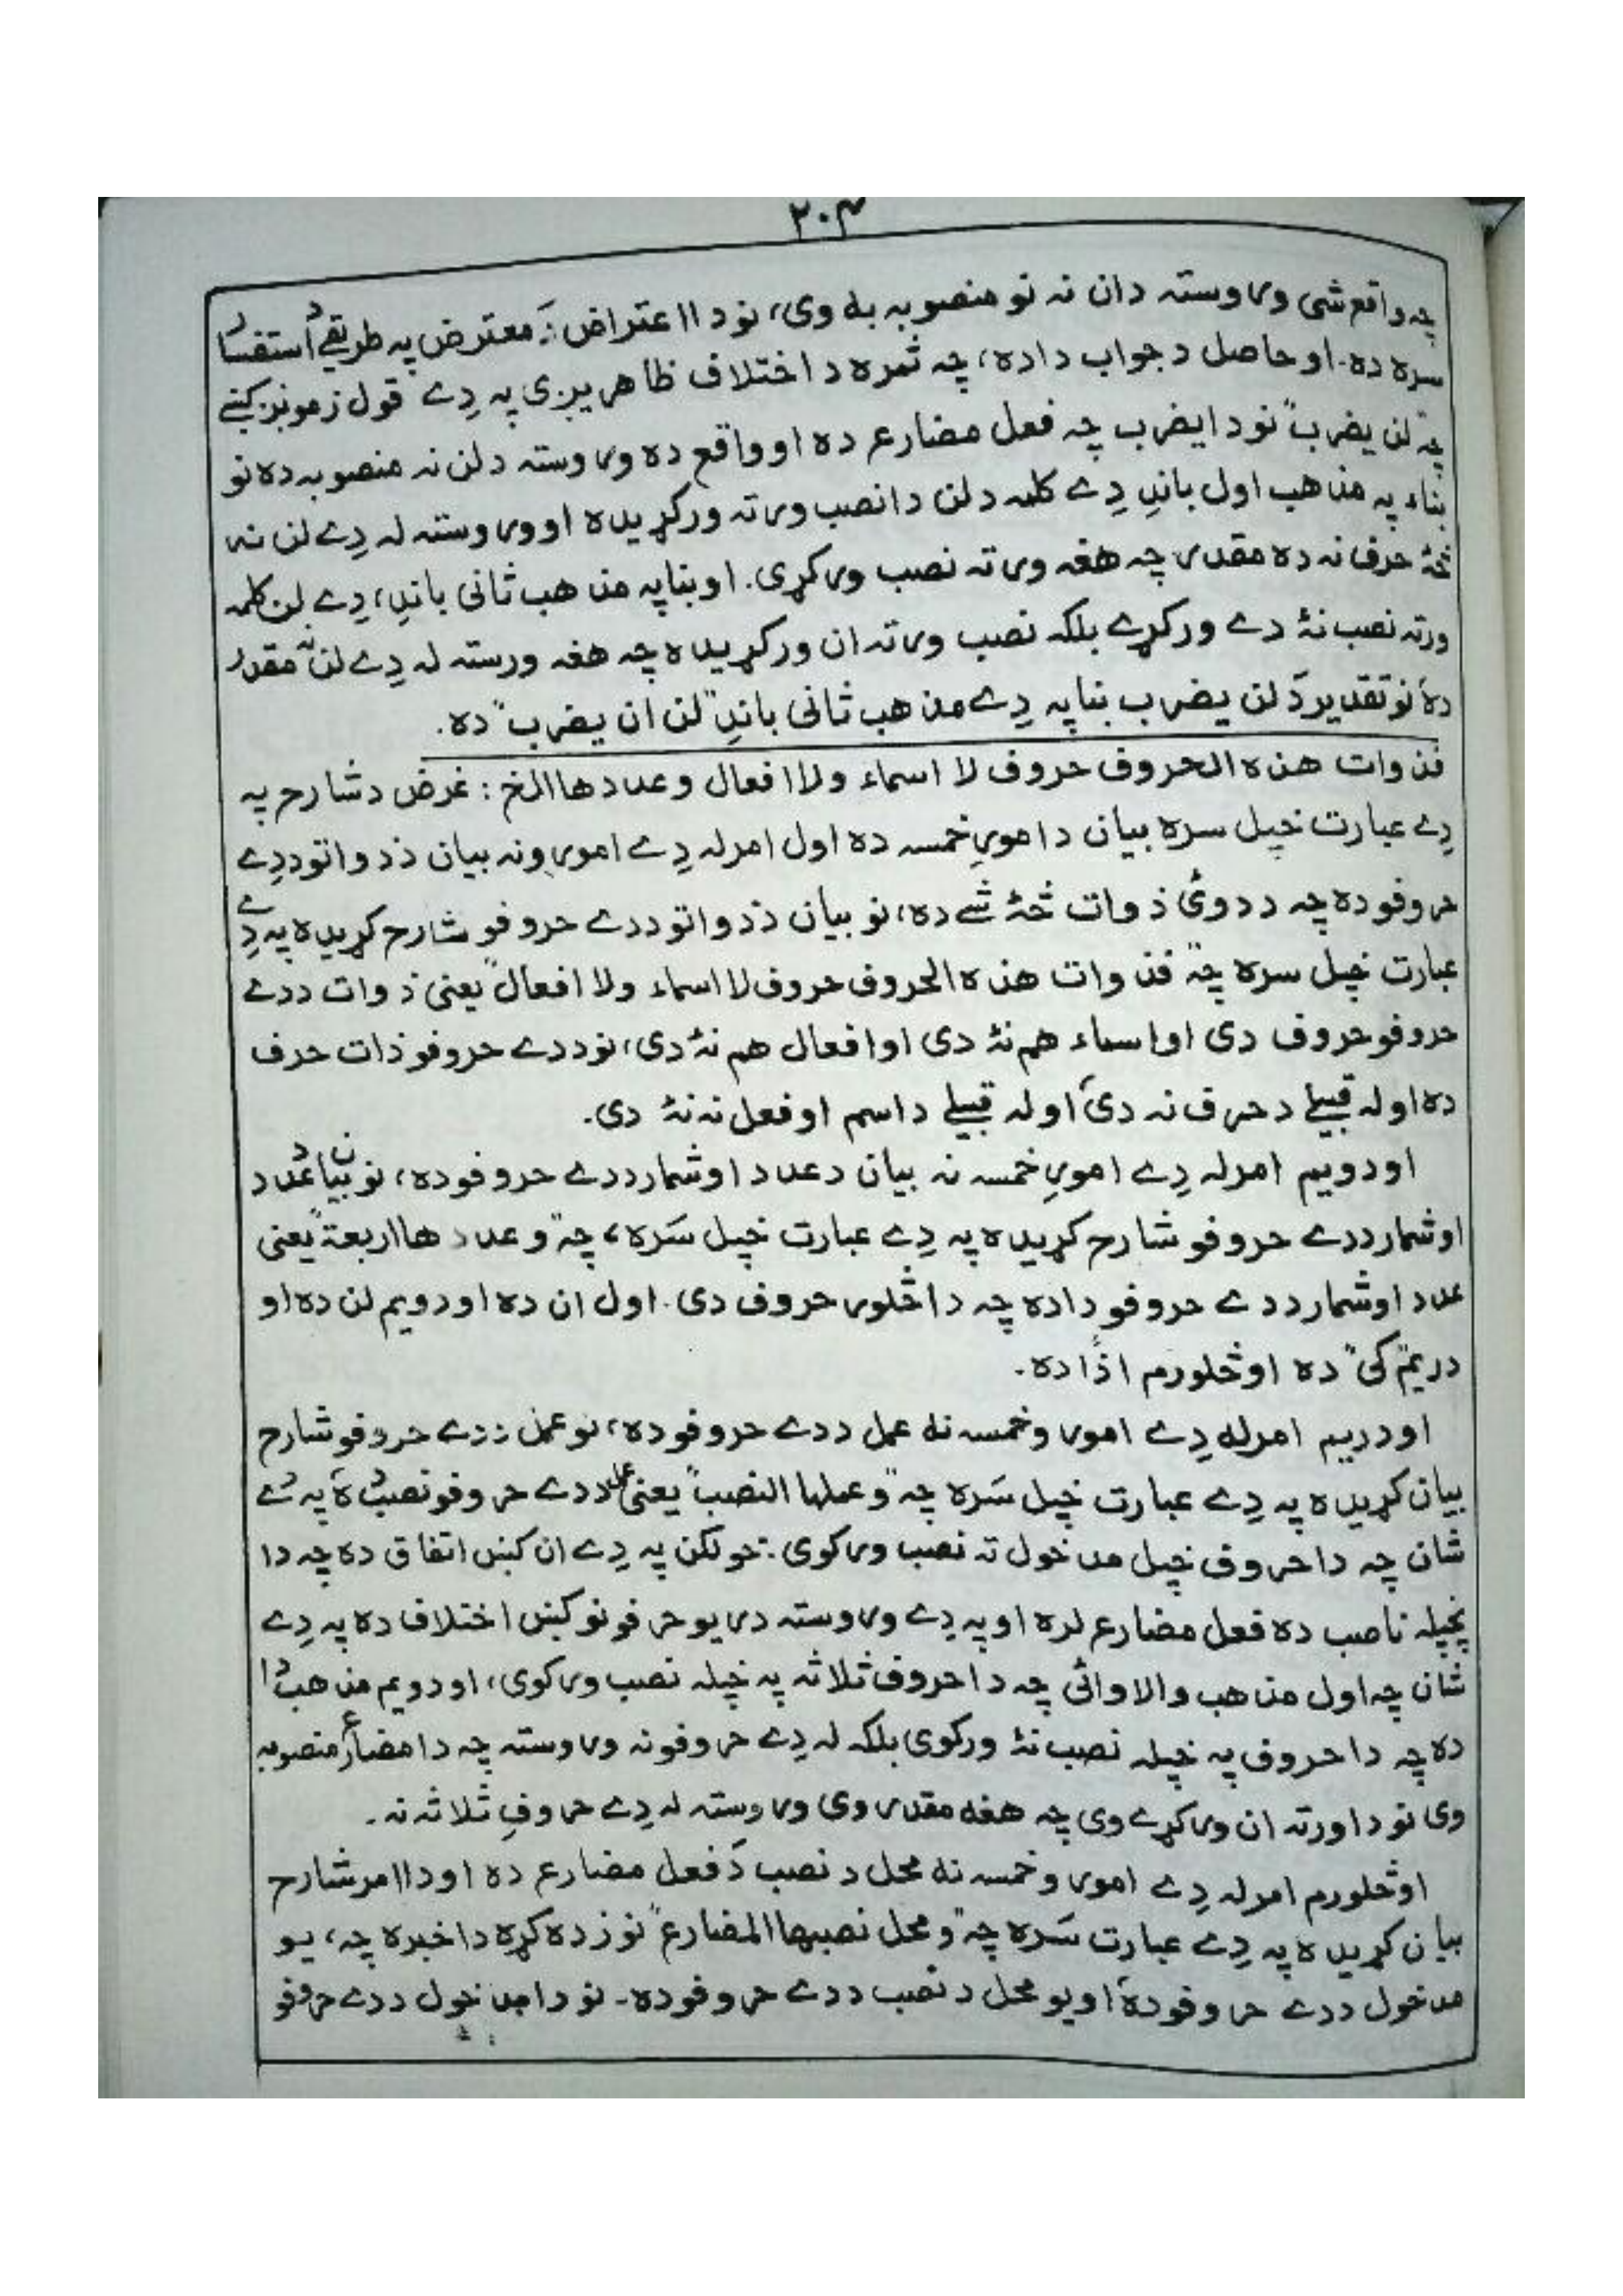 ۲۰۴
چه واقع شی وروسته دان نه نو منصوبه به وی، نو دا اعتراض دَ معترض په طریقے د استفسار
سره ده. او حاصل د جواب داده، چه ثمره د اختلاف ظاهریږی په دِے قول زمونږ کښے
چه "لن یضرب" نو دا یضرب چه فعل مضارع ده او واقع ده وروسته د لن نه منصوبه ده نو
بناء په مذهب اول باندِ دِے کلمه د لن دا نصب ورته ورکړیده او وروسته له دِے لن نه
څۀ حرف نه ده مقدر چه هغه ورته نصب ورکړی. او بنا په مذهب ثانی باندِ، دِے لن کلمه
ورته نصب نۀ دے ورکړے بلکه نصب ورته ان ورکړیده چه هغه ورسته له دِے لن نه مقدر
ده نو تقدیر دَ لن یضرب بنا په دِے مذهب ثانی باندِ "لن ان یضرب" ده.
فذوات هذه الحروف حروف لا اسماء ولا افعال وعددها الخ : غرض د شارح په
دِے عبارت خپل سره بیان د امورِ خمسه ده اول امر له دِے امورونه بیان د ذواتو ددِے
حروفو ده چه د دوئ ذوات څۀ شے ده، نو بیان د ذواتو ددے حروفو شارح کړیده په دِے
عبارت خپل سره چه "فذوات هذه الحروف حروف لا اسماء ولا افعال" یعنی ذوات ددے
حروفو حروف دی او اسماء هم نۀ دی او افعال هم نۀ دی، نو ددے حروفو ذات حرف
ده او له قبیلے د حرف نه دی او له قبیلے د اسم او فعل نه نۀ دی.
او دویم امر له دِے امورِ خمسه نه بیان د عدد او شمار ددے حروفو ده، نو بیان د عدد
او شمار ددے حروفو شارح کړیده په دِے عبارت خپل سَره، چه "وعددها اربعة" یعنی
عدد او شمار ددے حروفو داده چه دا څلور حروف دی. اول ان ده او دویم لن ده او
دریم "کی" ده او څلورم اذًا ده.
او دریم امر له دِے امور وخمسه نه عمل ددے حروفو ده، نو عمل ددے حروفو شارح
بیان کړیده په دِے عبارت خپل سَره چه "وعملها النصب" یعنی عمل ددے حروفو نصب ده په دے
شان چه دا حروف خپل مدخول ته نصب ورکوی. خو لکن په دِے ان کښ اتفاق ده چه دا
پخپله ناصب ده فعل مضارع لره او په دِے وروسته دریو حرفونو کښ اختلاف ده په دِے
شان چه اول مذهب والا وائی چه دا حروف ثلاثه په خپله نصب ورکوی، او دویم مذهب دا
ده چه دا حروف په خپله نصب نۀ ورکوی بلکه له دِے حروفونه وروسته چه دا مضارع منصوبه
وی نو دا ورته ان ورکړے وی چه هغه مقدر وی وروسته له دِے حروفِ ثلاثه نه.
او څلورم امر له دِے امور وخمسه نه محل د نصب دَ فعل مضارع ده او دا امر شارح
بیان کړیده په دِے عبارت سَره چه "ومحل نصبها المضارع" نو زده کړه دا خبره چه، یو
مدخول ددے حروفو ده او یو محل د نصب ددے حروفو ده. نو دا مدخول ددے حروفو